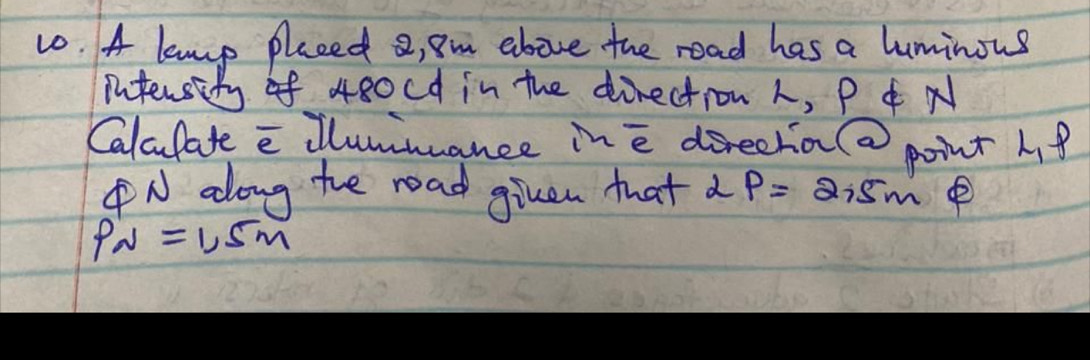 10. A lamp placed 2,8m above the road has a luminous
intensity of 480cd in the direction L, P & N
Calculate ē illuminance in ē direction @ point L, P
& N along the road given that LP = 2,5m &
PN = 1,5m